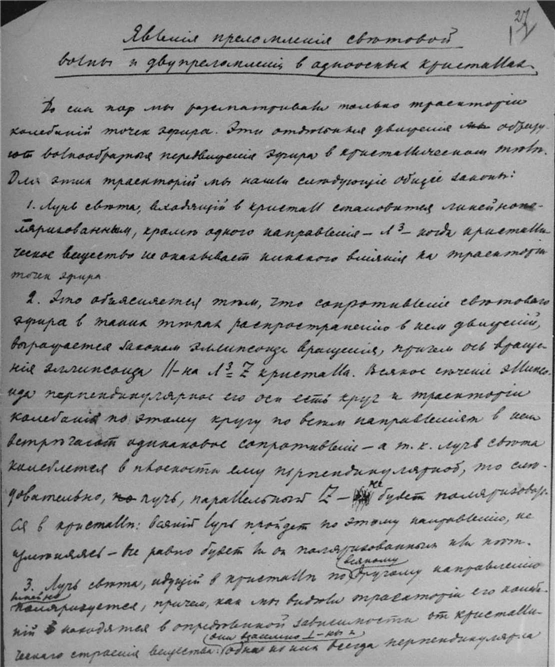 27
Явленія преломленія свѣтовой
волны и двупреломленія в одноосных кристаллах
До сих пор мы разсматривали только траекторіи
колебаній точек эфира. Эти отдѣльныя движенія образу-
ют волнообразныя передвиженія эфира в кристаллическом тѣлѣ.
Для этих траекторій мы нашли слѣдующіе общіе законы:
1. Лучъ свѣта, входящій в кристалл становится линейнопо-
ляризованным, кромѣ одного направленія – Л³ – когда кристалли-
ческое вещество не оказывает никакого вліянія на траекторіи
точек эфира
2. Это объясняется тѣм, что сопротивленіе свѣтового
эфира в таких тѣлах распространенію в нем движеній,
выражается законом эллипсоида вращенія, причем ось враще-
нія эллипсоида ||-на Л³ Z кристалла. Всякое сѣченіе эллипсо-
ида перпендикулярное его оси есть круг и траекторіи
колебаній по этому кругу по всѣм направленіям в нем
встрѣчают одинаковое сопротивленіе – а т. к. лучъ свѣта
колеблется в плоскости ему перпендикулярной, то слѣ-
довательно, лучъ, параллельный Z – не будет поляризовать-
ся в кристаллѣ: всякій лучъ пройдет по этому направленію, не
измѣняясь – все равно будет ли он поляризованным или нѣт.
3. Лучъ свѣта, идущій в кристаллѣ по всякому другому направленію
линейно поляризуется, причем, как мы видѣли траекторіи его колеба-
ній находятся в опредѣленной зависимости от кристалли-
ческаго строенія вещества: они взаимно ⊥-ны и одна из них всегда перпендикулярна